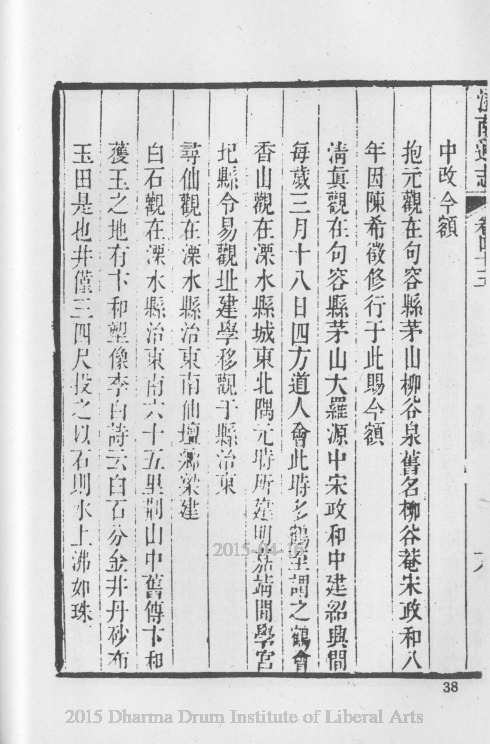 江南通志 卷四十三
中改今額
抱元觀在句容縣茅山柳谷泉舊名柳谷菴宋政和八
年因陳希微修行于此賜今額
清真觀在句容縣茅山大羅源中宋政和中建紹興間
每歲三月十八日四方道人會此時多鶴至謂之鶴會
香山觀在溧水縣城東北隅元時所建明嘉靖間學宮
圮縣令易觀址建學移觀于縣治東
尋仙觀在溧水縣治東南仙壇鄉梁建
白石觀在溧水縣治東南六十五里荆山中舊傳卞和
獲玉之地有卞和塑像李白詩云白石分金井丹砂布
玉田是也井僅三四尺投之以石則水上沸如珠
38
2015 Dharma Drum Institute of Liberal Arts